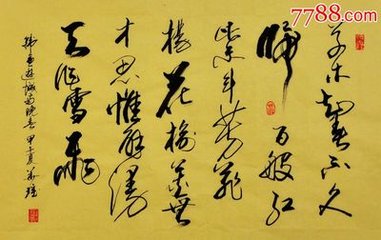 7788.com
草木知春不久
歸百般紅
紫斗芳菲
楊花榆莢無
才思惟解漫
天作雪飛
韩愈遊城南晚春 甲午夏